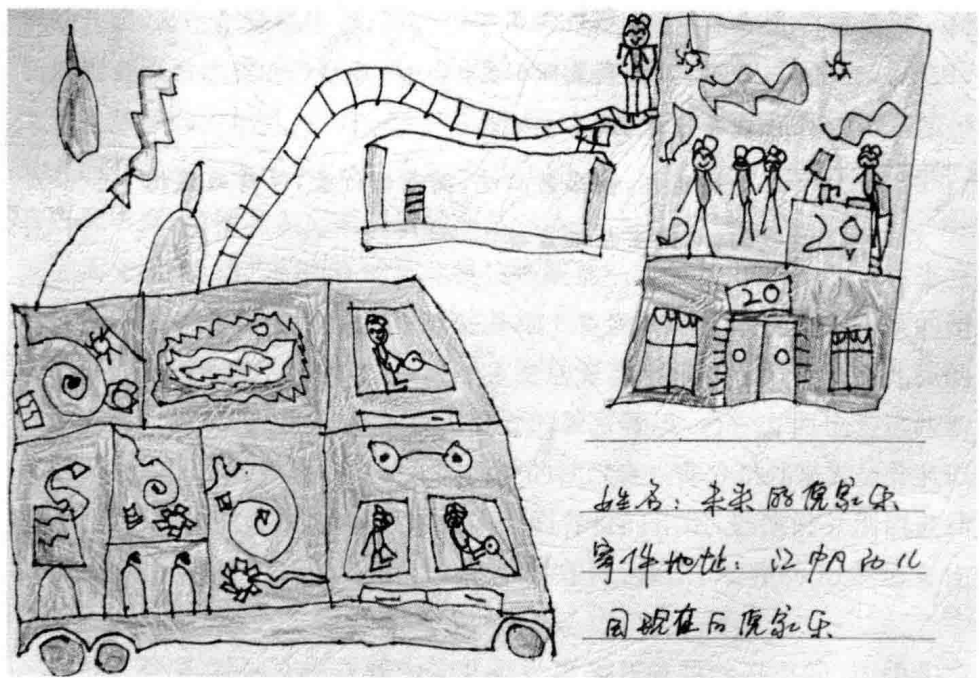 20
20
姓名：未来的倪家乐
寄件地址：江帆幼儿
园现在的倪家乐